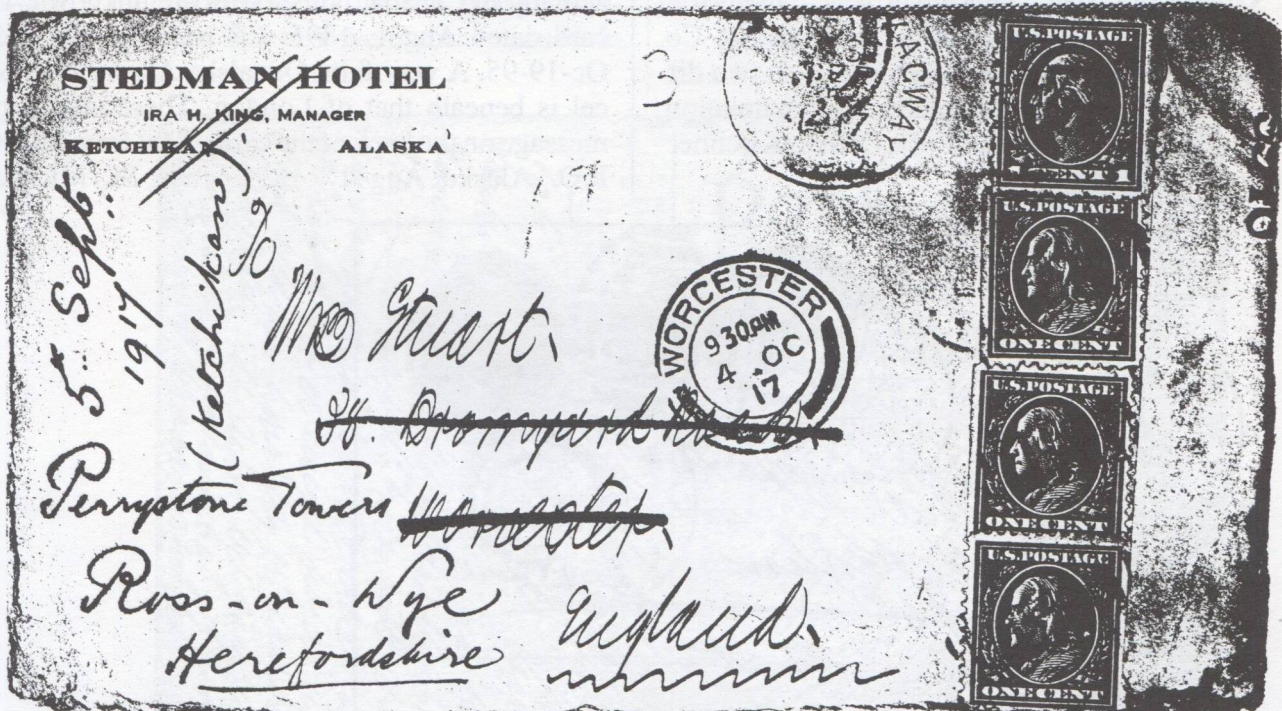 STEDMAN HOTEL
IRA H. KING, MANAGER
KETCHIKAN ALASKA
3
LACWAY
5 Sept
1917
(Ketchikan)
To
Mrs Stuart.
38. Bromyard
Worcester.
England.
Perrystone Towers
Ross-on-Wye
Herefordshire
WORCESTER
9 30PM
4 OC
17
U.S. POSTAGE
1 CENT 1
U.S. POSTAGE
ONE CENT
U.S. POSTAGE
ONE CENT
U.S. POSTAGE
ONE CENT